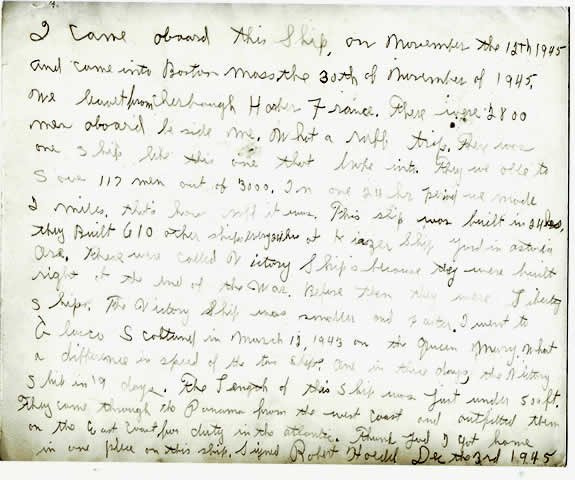 I came aboard this Ship, on November the 12th 1945
and came into Boston Mass the 30th of November of 1945.
We leave from Cherbough Harber France. There were 2800
men aboard be side me. What a ruff trip. There was
one ship like this one that broke into. They we able to
Save 117 men out of 3000. In one 24 hr period we made
2 miles. that's how ruff it was. This ship was built in 24
they Built 610 other ships at Kiazer Ship yard in astoria
Ore. these were called Victory Ships because they were built
right at the end of the War. Before then they were Liberty
Ships. The Victory Ship was smaller and faster. I went to
Scotland in March 13, 1943 on the Queen Mary. What
a difference in speed of the two ships. one in three days, the Victory
Ship in 19 days. The Length of this Ship was just under 500 ft.
They came through the Panama from the west Coast and outfitted them
on the East Coast for duty in the atlantic. Thank God I got home
in one piece on this ship. Signed Robert Dec the 3rd 1945